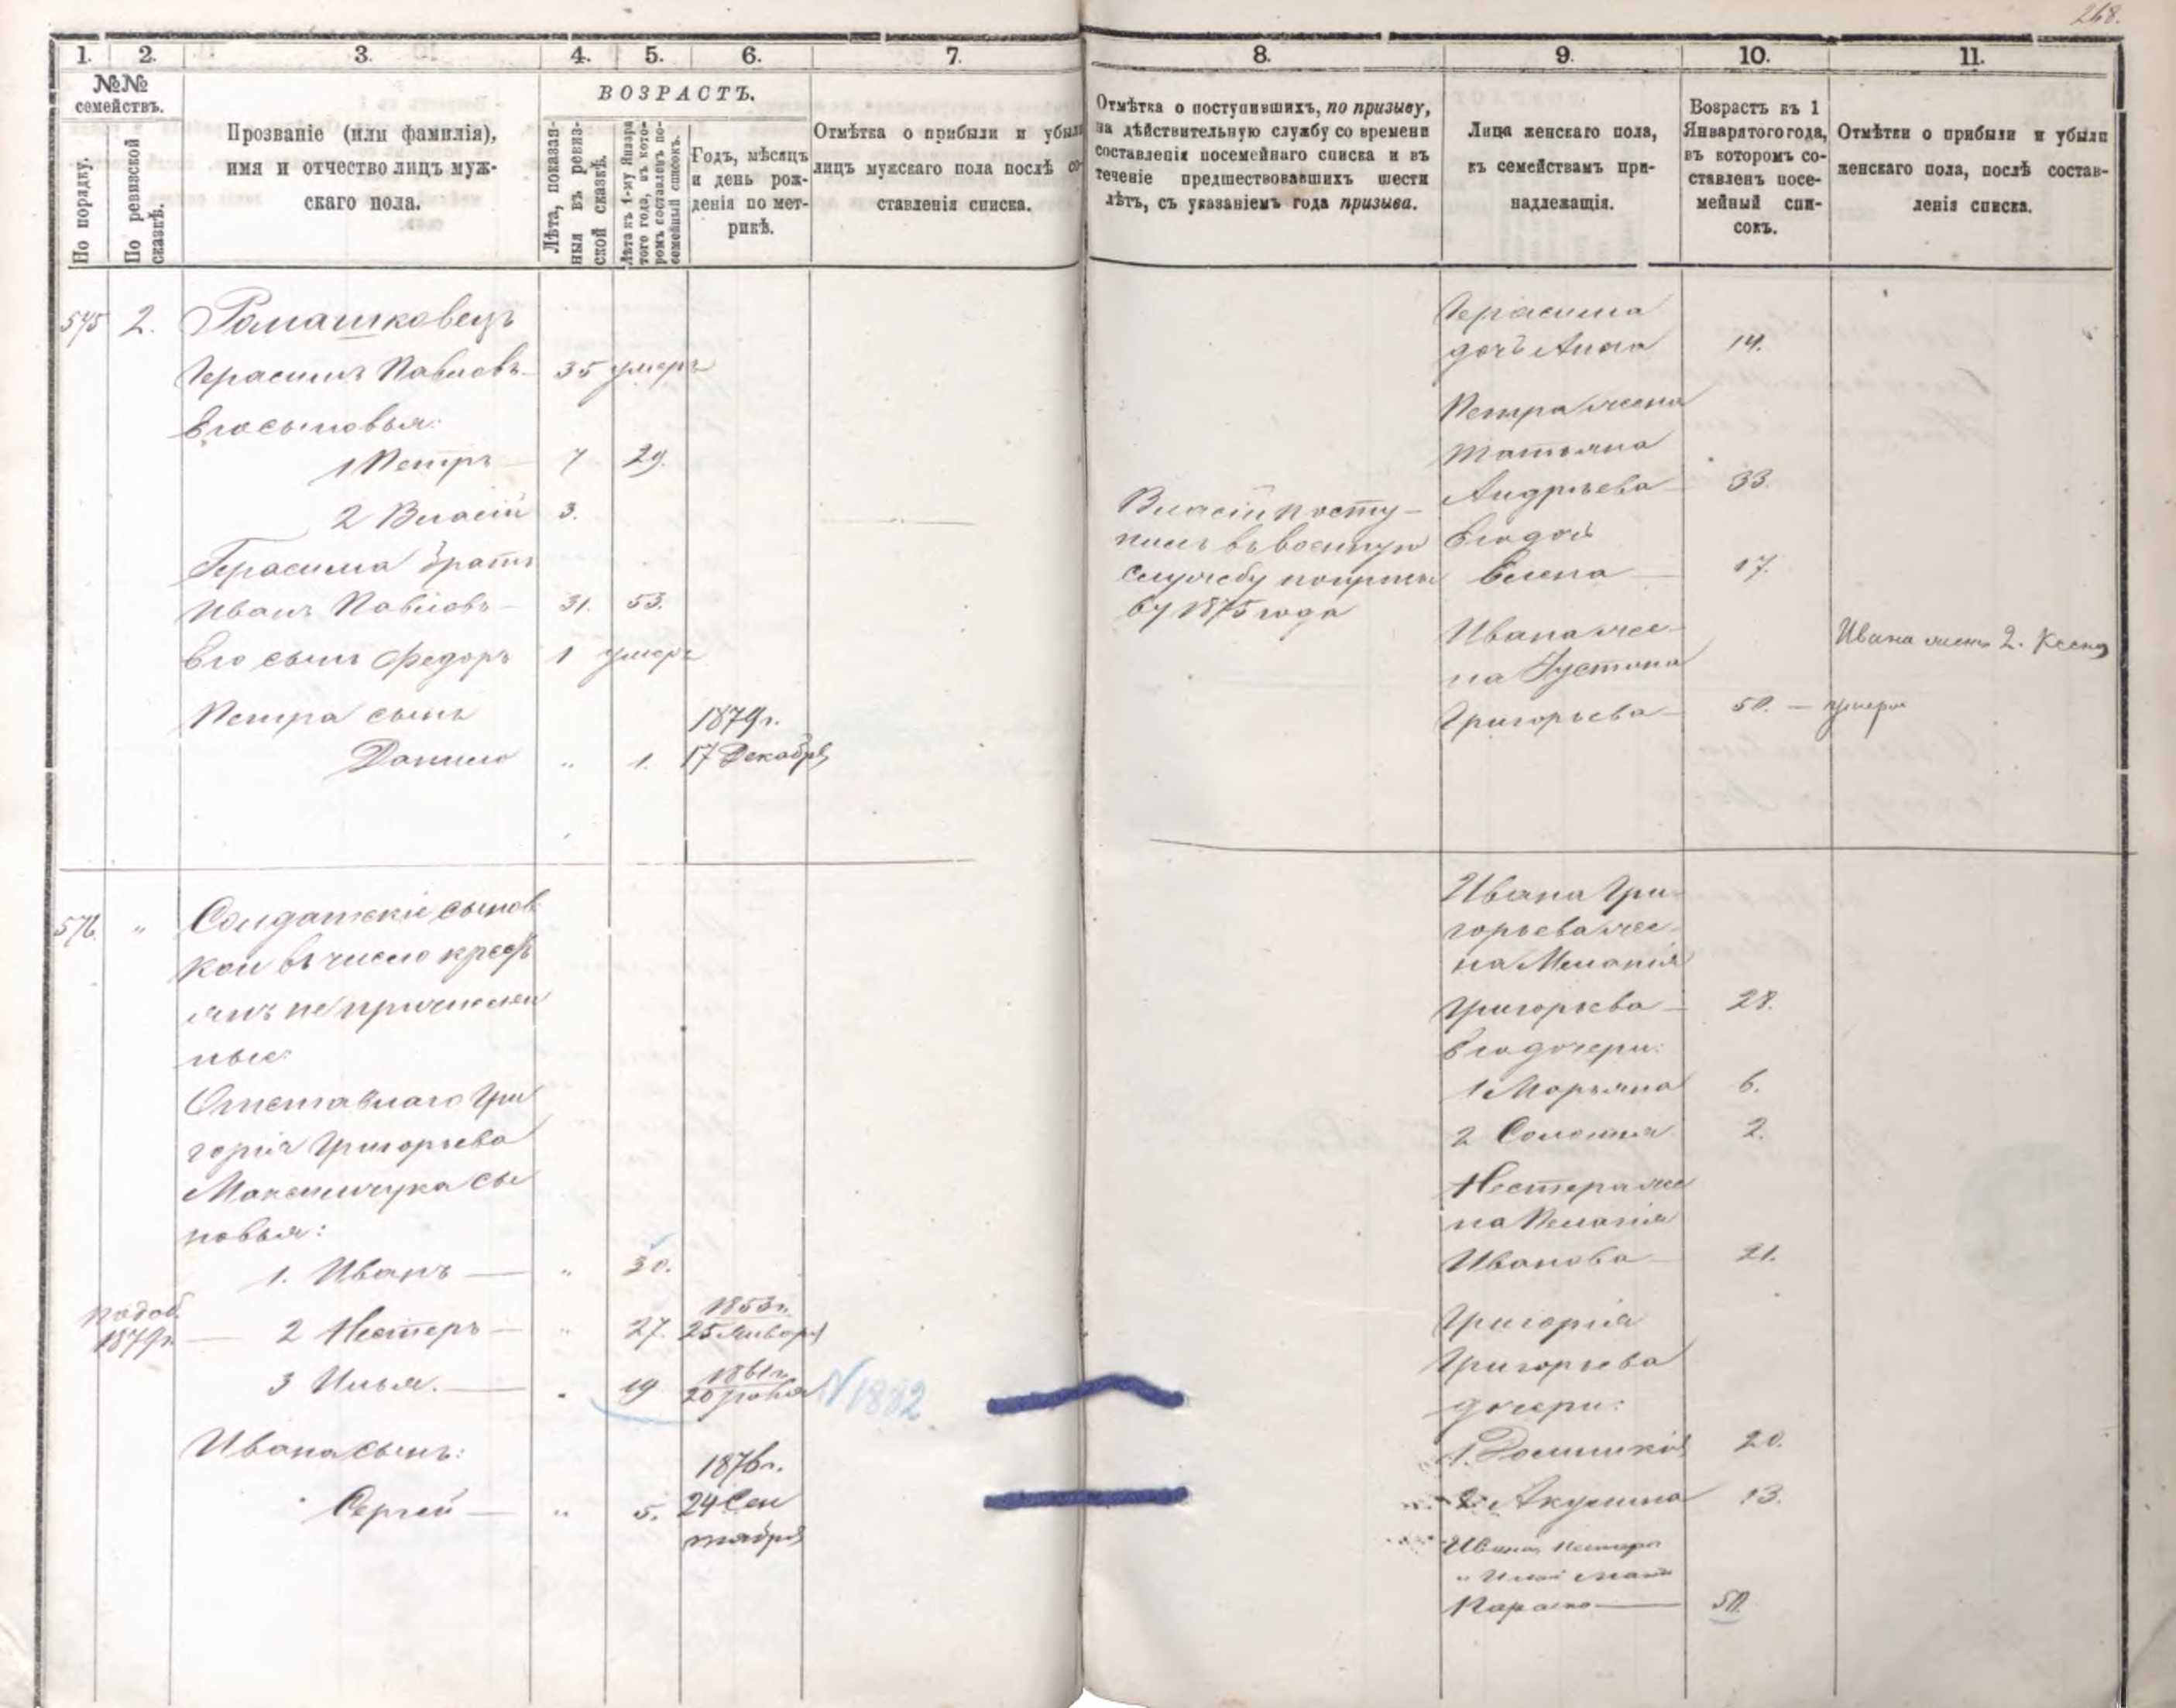 268.
1. 2. 3. 4. 5. 6. 7.
№№
семействъ.
По порядку.
По ревизской
сказкѣ.
Прозваніе (или фамилія),
имя и отчество лицъ муж-
скаго пола.
ВОЗРАСТЪ.
Лѣта, показан-
ныя въ ревиз-
ской сказкѣ.
Лѣта къ 1-му Января
того года, въ кото-
ромъ составленъ по-
семейный списокъ.
Годъ, мѣсяцъ
и день рож-
денія по мет-
рикѣ.
Отмѣтка о прибыли и убыли
лицъ мужскаго пола послѣ со-
ставленія списка.
575 2. Ромашковецъ
Герасимъ Павловъ 35 умеръ
Его сыновья:
1 Петръ 7 29.
2 Власій 3.
Герасима братъ
Иванъ Павловъ 31. 53.
Его сынъ Федоръ 1 умеръ
Петра сынъ 1879 г.
Данило „ 1. 17 Декабря
576. „ Солдатскіе сынов
кои въ число кресть
янъ не причислен
ные:
Отставнаго Гри
горія Григорьева
Максимчука сы
новья:
1. Иванъ „ 30.
1879 г. 2 Нестеръ „ 27. 1853 г. 25 Января
3 Илья. „ 19 1861 г. 20 Іюля N 1882
Ивана сынъ: 1876 г.
Сергей „ 5. 24 Сен
тября
8. 9. 10. 11.
Отмѣтка о поступившихъ, по призыву,
на дѣйствительную службу со времени
составленія посемейнаго списка и въ
теченіе предшествовавшихъ шести
лѣтъ, съ указаніемъ года призыва.
Лица женскаго пола,
къ семействамъ при-
надлежащія.
Возрастъ къ 1
Января того года,
въ которомъ со-
ставленъ посе-
мейный спи-
сокъ.
Отмѣтки о прибыли и убыли
женскаго пола, послѣ состав-
ленія списка.
Власій посту-
пилъ въ военную
службу по призы
ву 1875 года
Герасима
дочь Анна 14.
Петра жена
Татьяна
Андрѣева 33.
Его дочь
Елена 17.
Ивана же-
на Іустина
Григорьева 50. — умерла
Ивана жена 2. Ксенія
Ивана Гри-
горьева же-
на Меланія
Григорьева 28.
Его дочери:
1 Марьяна 6.
2 Соломія 2.
Нестера же
на Пелагія
Иванова 21.
Григорія
Григорьева
дочери:
1. Домникія 20.
2. Акулина 13.
Ивана, Нестера
и Ильи мать
Параска 50.